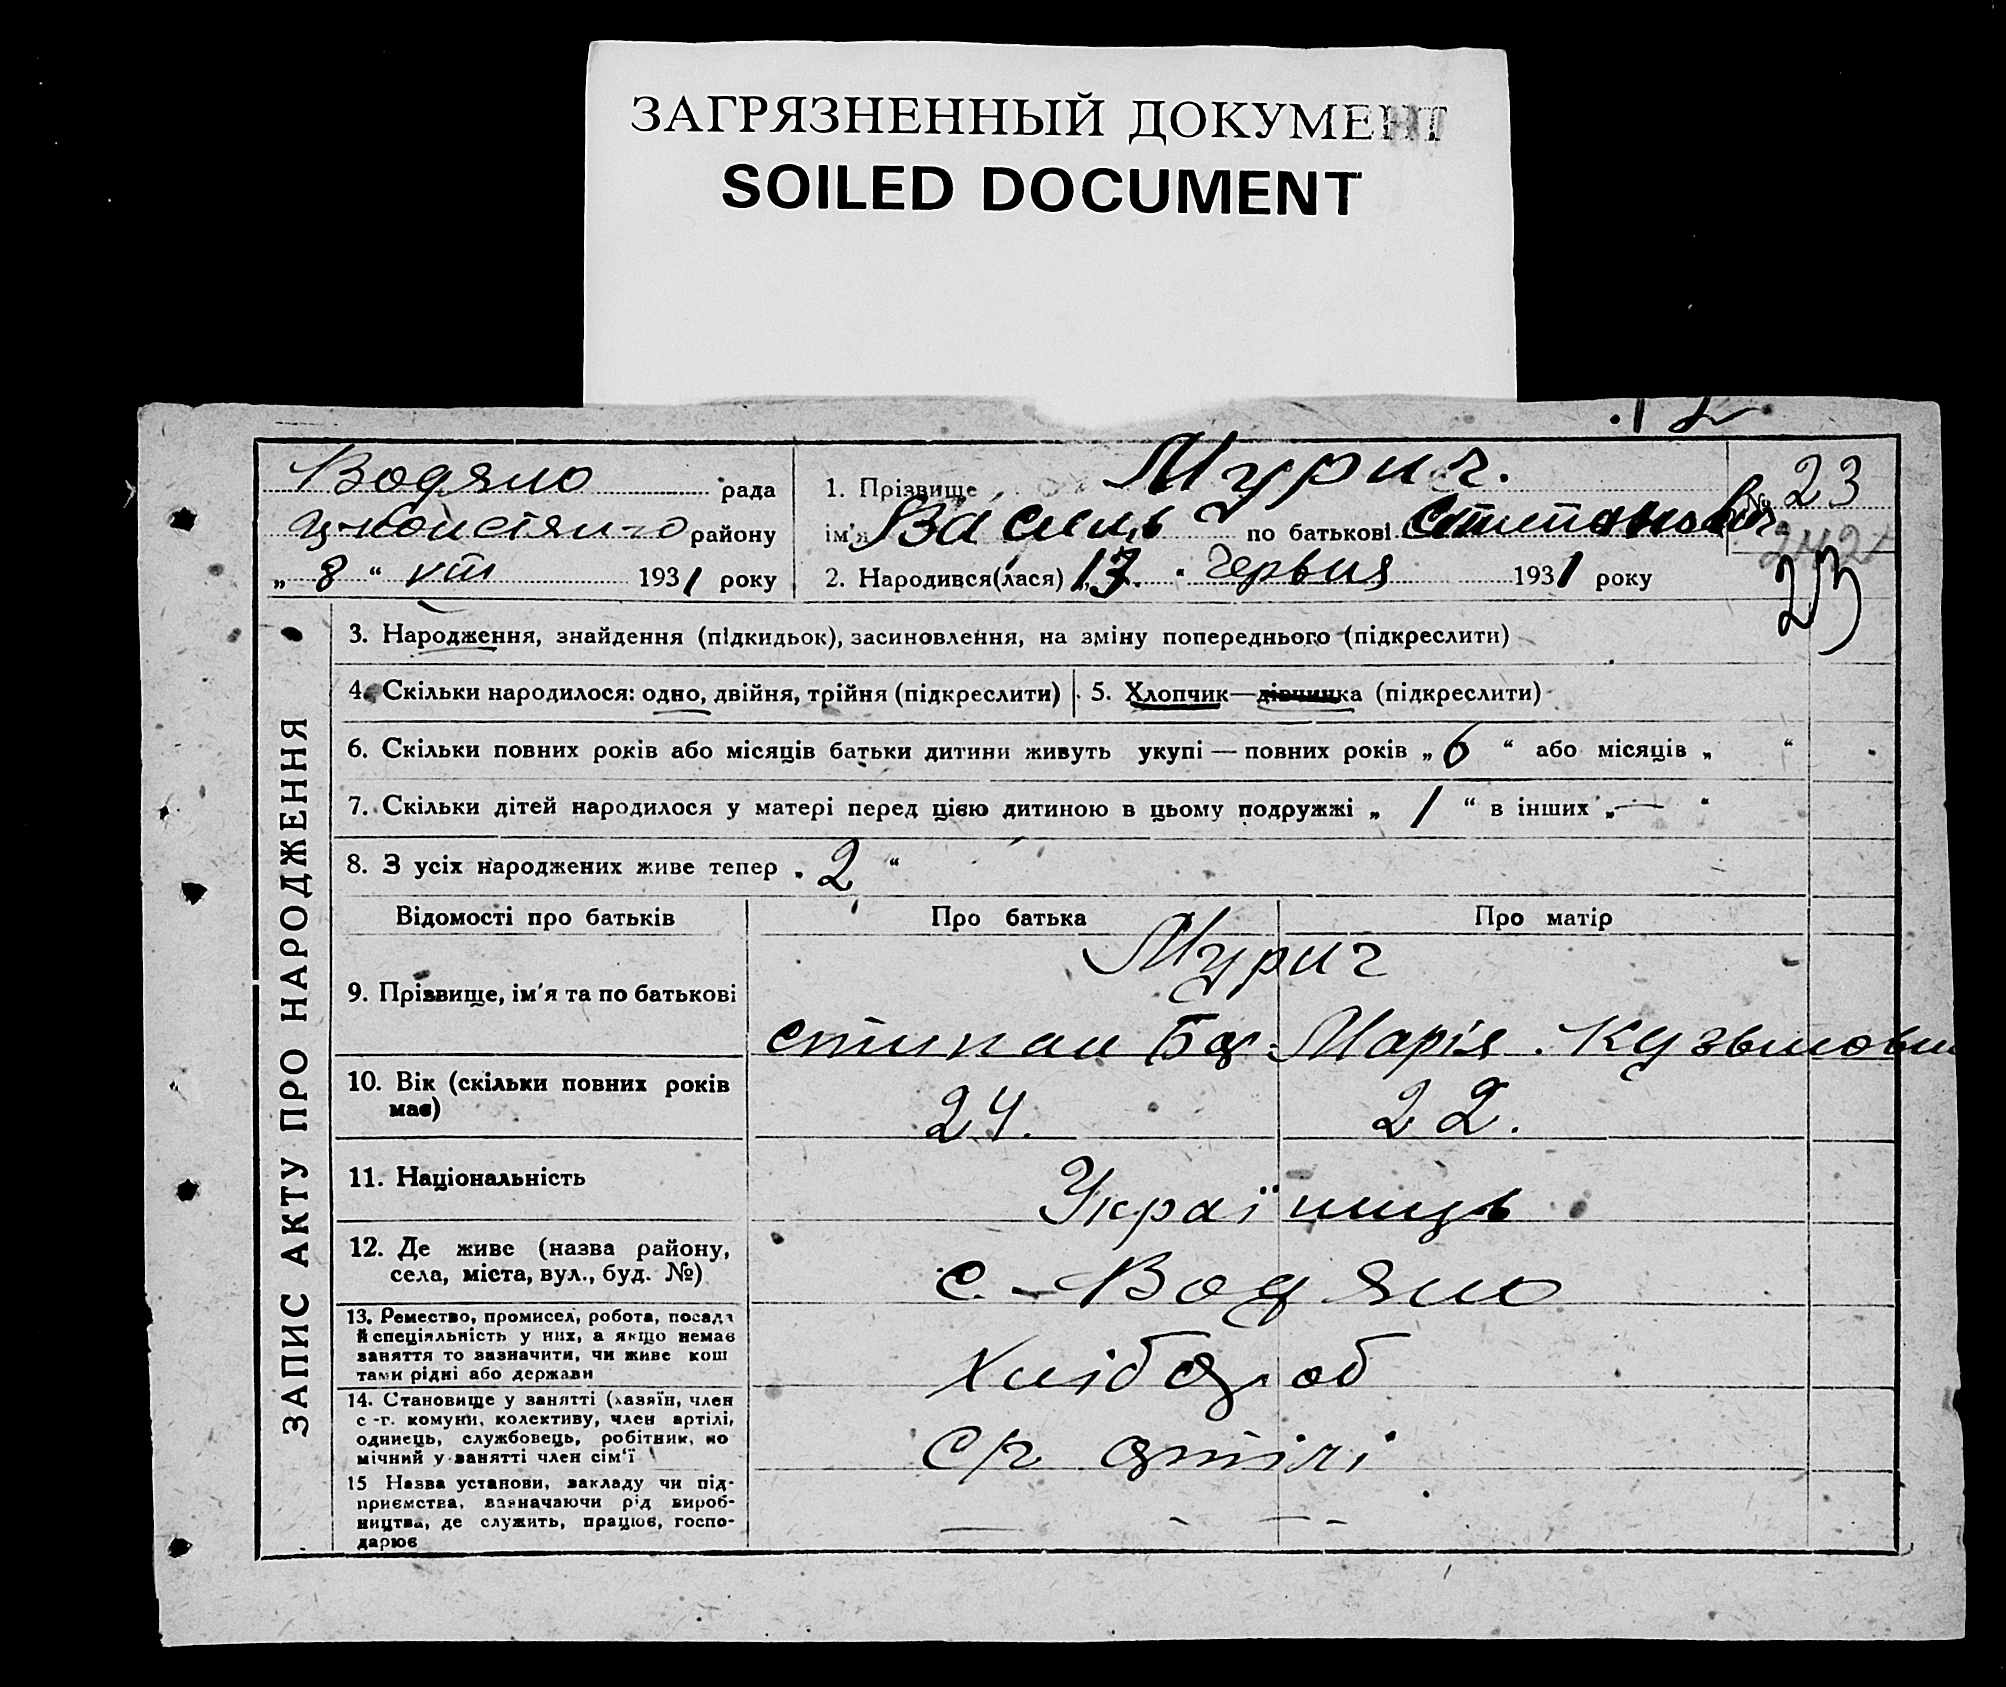 ЗАГРЯЗНЕННЫЙ ДОКУМЕНТ
SOILED DOCUMENT
Водяно рада
району
„ 8 “ VIII 1931 року
1. Прізвище Мурич.
ім'я Василь по батькові Степанович
2. Народився(лася) „17. червня 1931 року
№ 23
242
23
ЗАПИС АКТУ ПРО НАРОДЖЕННЯ
3. Народження, знайдення (підкидьок), засиновлення, на зміну попереднього (підкреслити)
4. Скільки народилося: одно, двійня, трійня (підкреслити)
5. Хлопчик—дівчинка (підкреслити)
6. Скільки повних років або місяців батьки дитини живуть укупі — повних років „ 6 “ або місяців „ “
7. Скільки дітей народилося у матері перед цією дитиною в цьому подружжі „ 1 “ в інших „ — “
8. З усіх народжених живе тепер „ 2 “
Відомості про батьків Про батька Про матір
Мурич
9. Прізвище, ім'я та по батькові
стипан Марія Кузьмовн
10. Вік (скільки повних років
має)
24. 22.
11. Національність
Українць
12. Де живе (назва району,
села, міста, вул., буд. №)
с. - Водяно
13. Ремество, промисел, робота, посада
й спеціяльність у них, а якщо немає
заняття то зазначити, чи живе кош
тами рідні або держави
хлібороб
14. Становище у занятті (хазяїн, член
с-г. комуни, колективу, член артілі,
одинець, службовець, робітник, по
мічний у занятті член сім'ї
с/г артілі
15 Назва установи, закладу чи під-
приємства, зазначаючи рід вироб-
ництва, де служить, працює, госпо-
дарює